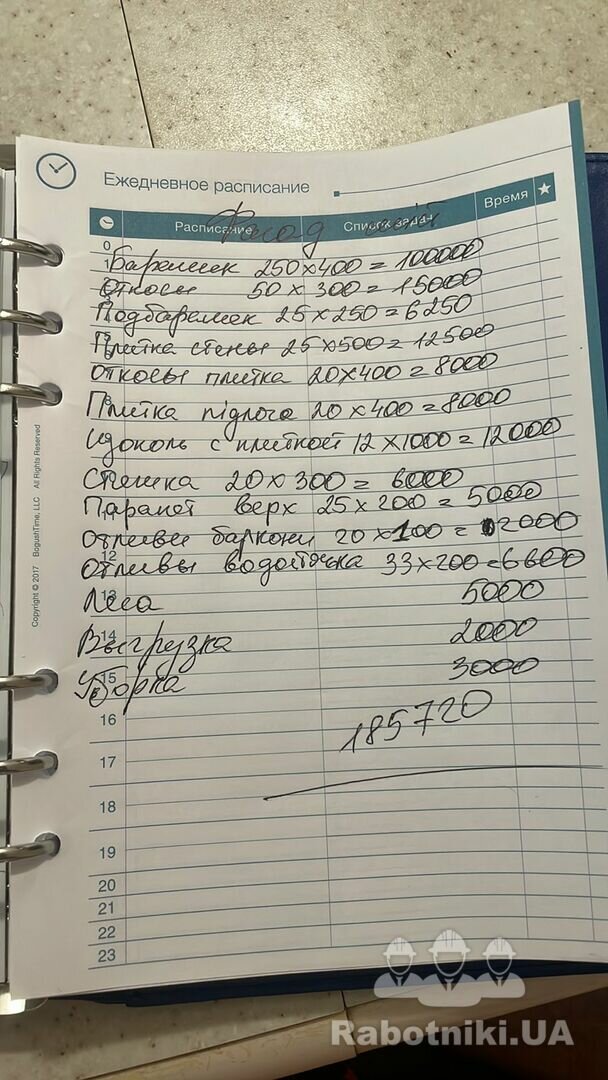 Ежедневное расписание
Расписание Список задач Время
Фасад
0
1
Барашек 250×400=100000
Откосы 50×300=15000
Подбарашек 25×250=6250
Плитка стены 25×500=12500
Откосы плитка 20×400=8000
Плитка підлога 20×400=8000
Цоколь с плиткой 12×1000=12000
Стяжка 20×300=6000
Парапет верх 25×200=5000
Отливы балкони 20×100=2000
12
Отливы водостічка 33×200=6600
13
Леса 5000
14
Выгрузка 2000
15
Уборка 3000
16
185720
17
18
19
20
21
22
23
Copyright © 2017 BogushTime, LLC All Rights Reserved
Rabotniki.UA